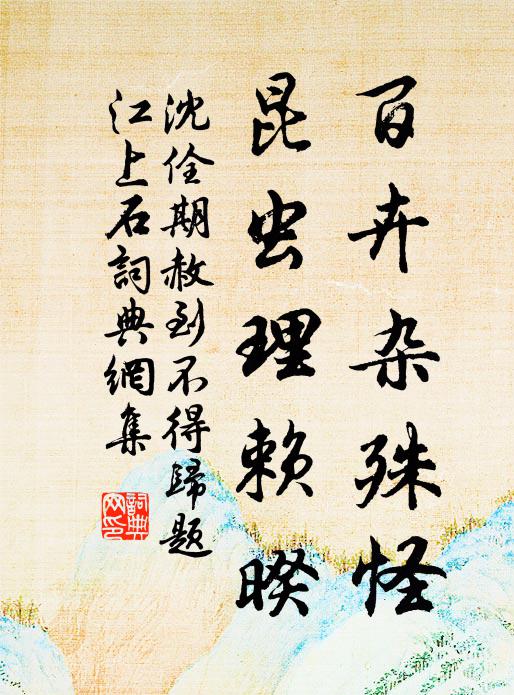 百卉杂殊怪
昆虫理赖暌
沈佺期赦到不得歸题
江上石詞典網集
詞典網印